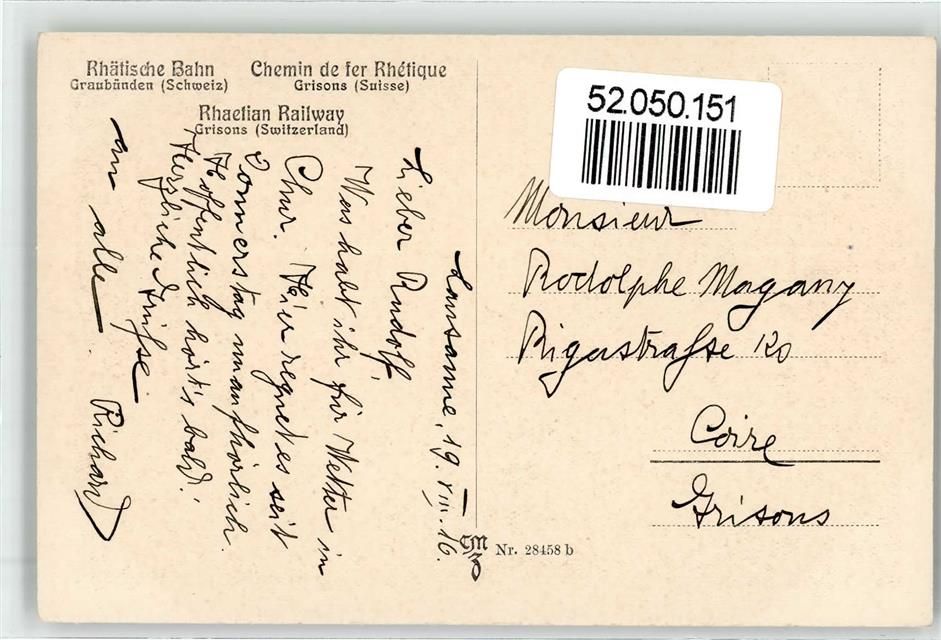 Rhätische Bahn
Graubünden (Schweiz)
Chemin de fer Rhétique
Grisons (Suisse)
Rhaetian Railway
Grisons (Switzerland)
52.050.151
Lausanne, 19. VIII. 16.
Lieber Rudolf,
Was habt ihr für Wetter in
Chur. Hier regnet es seit
Donnerstag unaufhörlich.
Hoffentlich hört's bald!
Herzliche Grüsse
an alle Richard
Monsieur
Rodolphe Magany
Rigastrasse
Coire
Grisons
Nr. 28458 b